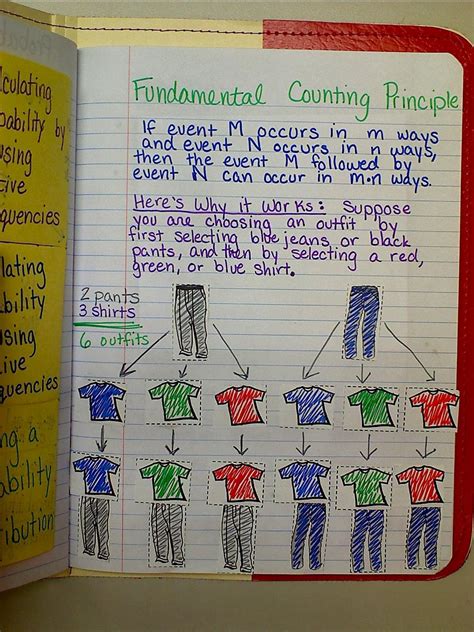 culating
bability by
using
tive
quencies
lating
bility
using
tive
quencies
ng a
ability
ribution
Fundamental Counting Principle
If event M occurs in m ways
and event N occurs in n ways,
then the event M followed by
event N can occur in m·n ways.
Here's Why it Works: Suppose
you are choosing an outfit by
first selecting blue jeans or black
pants, and then by selecting a red,
green, or blue shirt.
2 pants
3 shirts
6 outfits